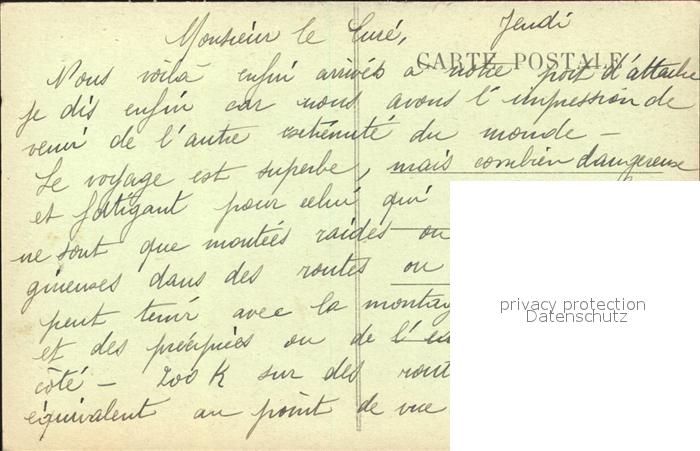 Monsieur le Curé, Jeudi
CARTE POSTALE
Nous voilà enfin arrivés à notre port d'attache
je dis enfin car nous avons l'impression de
venir de l'autre extrémité du monde –
Le voyage est superbe, mais combien dangereuse
et fatigant pour celui qui
ne sont que montées raides ou
gineuses dans des routes ou
peut tenir avec la montag
et des précipices ou de l'ea
côté – 200 K sur des rout
équivalent au point de vue
privacy protection
Datenschutz